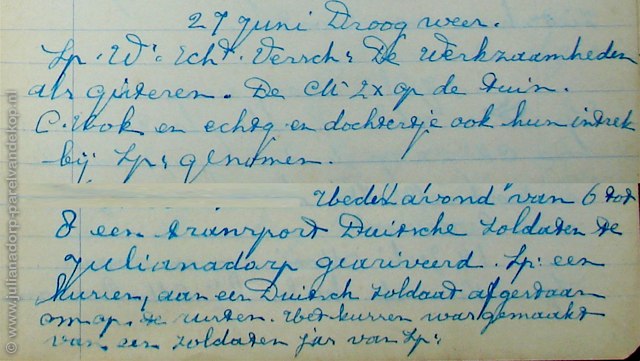 27 Juni Droog weer.
Sp. W: Echt. Versch: De Werkzaamheden
als gisteren. De CM 2x op de tuin.
C. Wok en echtg en dochtertje ook hun intrek
bij Sp: genomen.
avond van 6 tot
8 een transport Duitsche soldaten te
Julianadorp gearriveerd. Sp: een
kussen, aan een Duitsch soldaat afgestaan
om op te rusten. Het kussen was gemaakt
van een soldaten jas van Sp:
© www.julianadorp-parelvandekop.nl